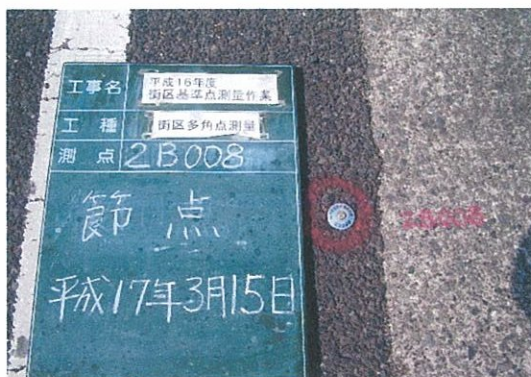 工事名
平成16年度
街区基準点測量作業
工種
街区多角点測量
測点
2B008
節点
平成17年3月15日